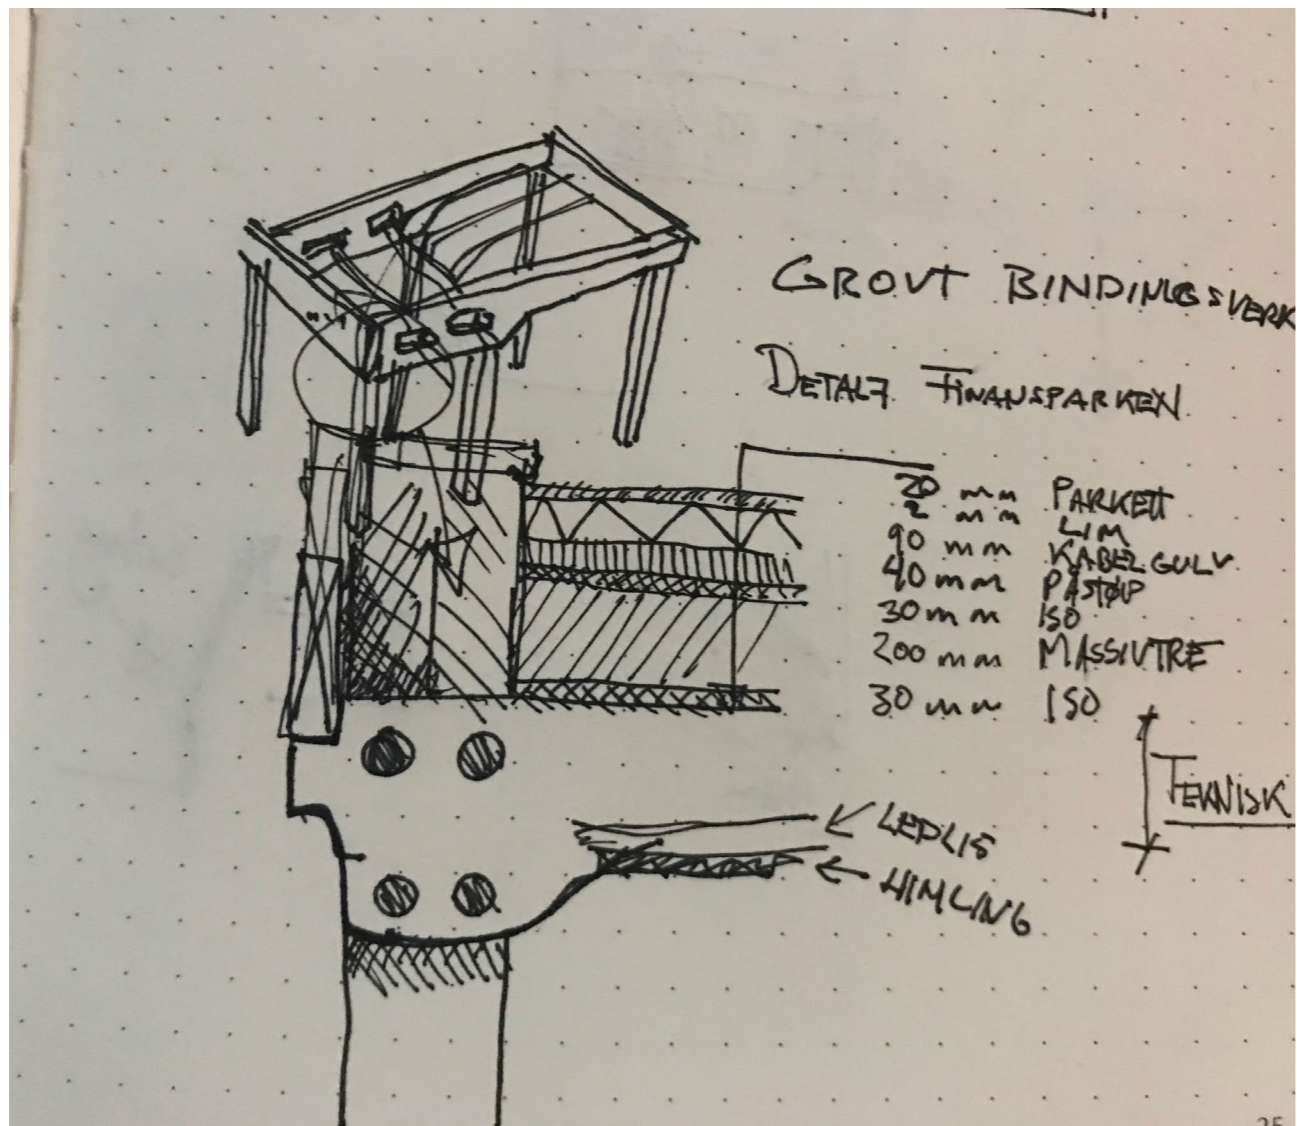 GROVT BINDINGSVERK
DETALJ FINANSPARKEN
20 mm PARKETT
2 mm LIM
90 mm KABELGULV
40 mm PÅSTØP
30 mm ISO
200 mm MASSIVTRE
30 mm ISO
TEKNISK
LEDLIS
HIMLING
25